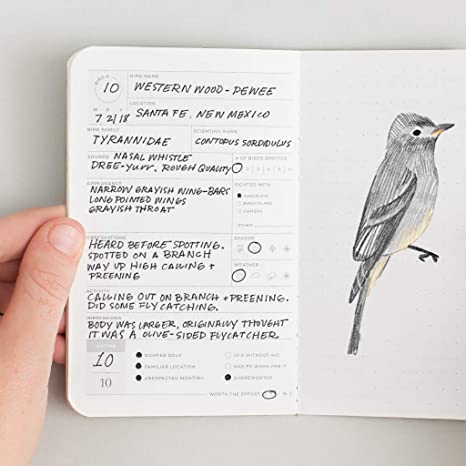 BIRD #
10
BIRD NAME
WESTERN WOOD-PEWEE
M D Y
7 2/18
LOCATION
SANTA FE, NEW MEXICO
BIRD FAMILY
TYRANNIDAE
SCIENTIFIC NAME
CONTOPUS SORDIDULUS
SOUNDS NASAL WHISTLE
DREE-YURR. ROUGH QUALITY
# OF BIRDS SPOTTED
APPEARANCE
NARROW GRAYISH WING-BARS
LONG POINTED WINGS
GRAYISH THROAT
SIGHTED WITH
NAKED EYE
BINOCULARS
CAMERA
OTHER
OBSERVATIONS
HEARD BEFORE SPOTTING.
SPOTTED ON A BRANCH
WAY UP HIGH CALLING +
PREENING
SEASON
WEATHER
ACTIVITY
CALLING OUT ON BRANCH + PREENING.
DID SOME FLYCATCHING.
IMPRESSIONS
BODY WAS LARGER, ORIGINALLY THOUGHT
IT WAS A OLIVE-SIDED FLYCATCHER
10
10
SIGHTED SOLO
FAMILIAR LOCATION
UNEXPECTED SIGHTING
ID'D WITHOUT AID
HAD TO WORK FOR IT
SHAREWORTHY
WORTH THE EFFORT